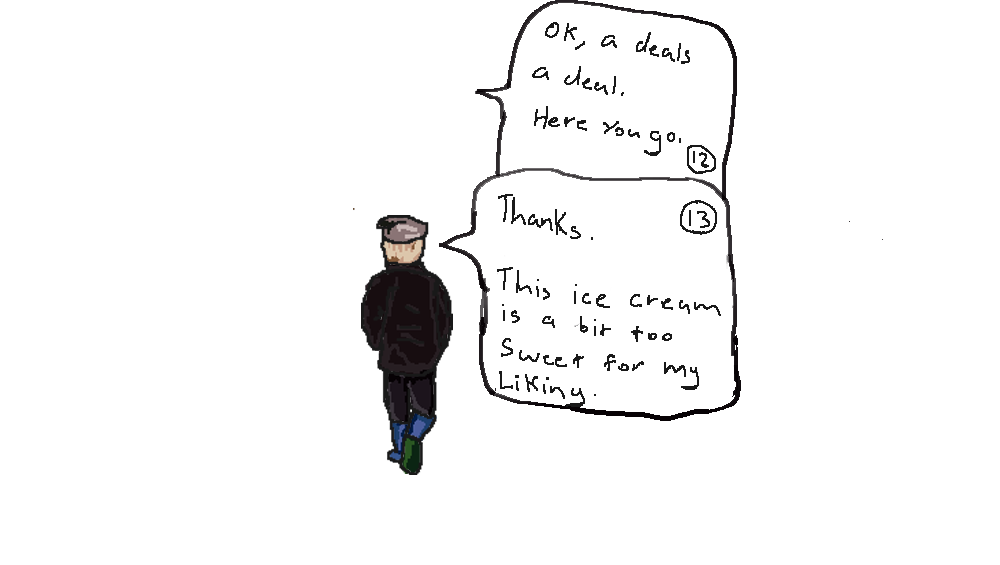 OK, a deals
a deal.
Here you go.
12
Thanks.
13
This ice cream
is a bit too
Sweet for my
Liking.